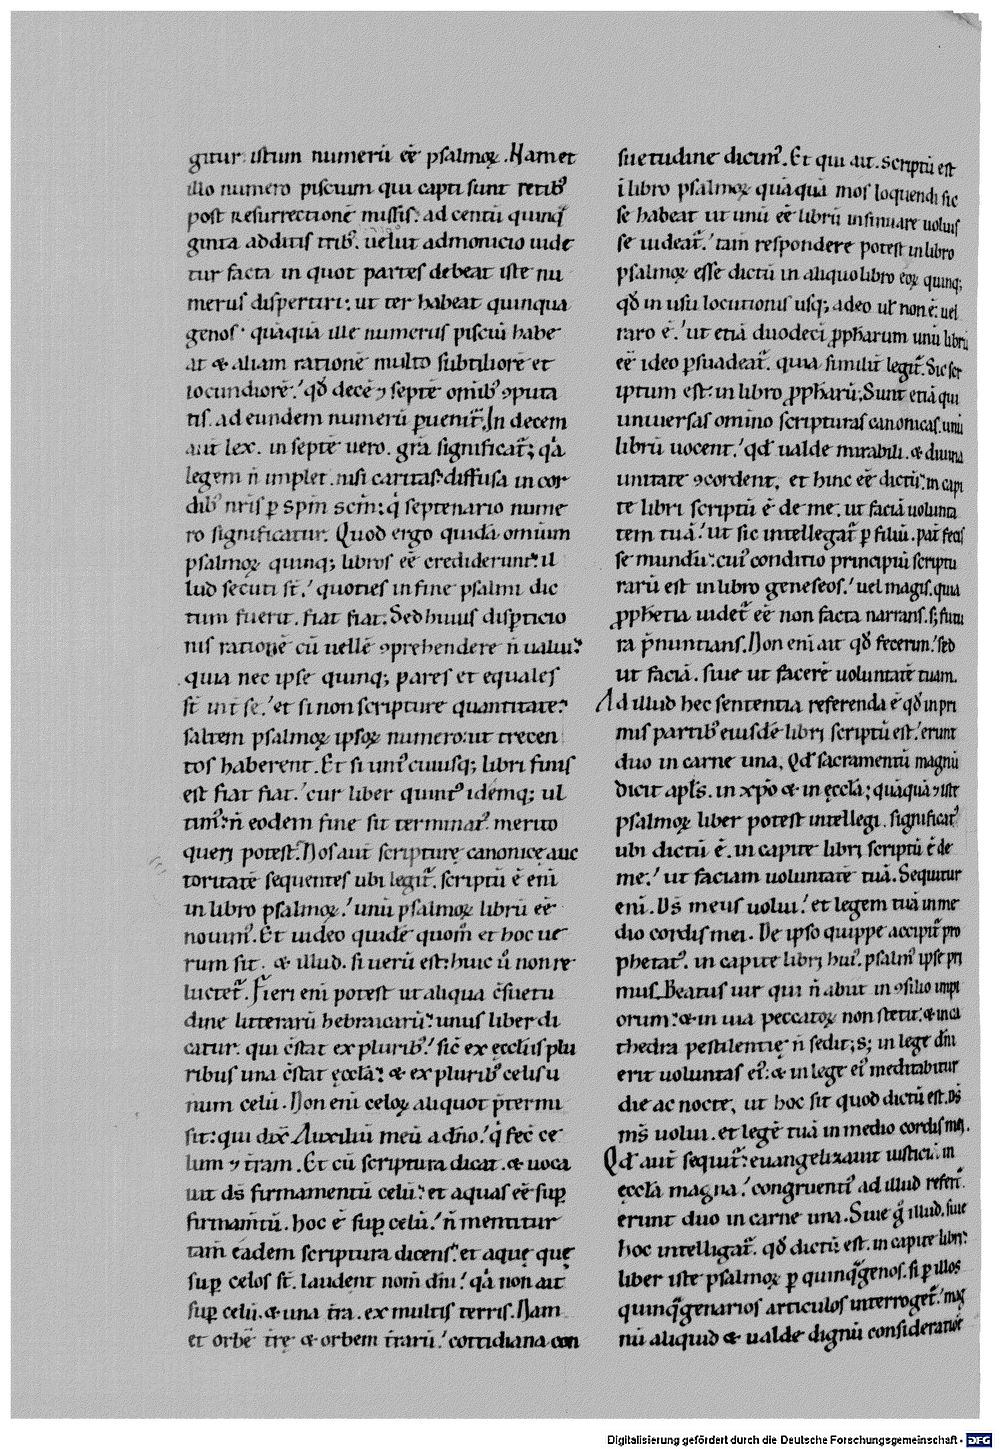 gitur. istum numerū eē psalmoꝝ. Nam et
illo numero piscium qui capti sunt retibꝰ
post resurrectionē missis: ad centū quinq̄
ginta additis tribꝰ. uelut admonicio uide
tur facta in quot partes debeat iste nu
merus dispertiri: ut ter habeat quinqua
genos. quāquā ille numerus pisciū habe
at & aliam rationē multo subtiliorē et
iocundiorē.' qđ decē ⁊ septē omībꝰ ꝯputa
tis. ad eundem numerū ꝑuenit̄. In decem
aut̄ lex. in septē uero. grā significat̄; qͣa
legem n̄ implet. nisi caritas: diffusa in cor
dibꝰ nr̄is ꝑ spm̄ scm̄: q̇ septenario nume
ro significatur. Quod ergo quidā omium
psalmoꝝ quinq; libros eē crediderunt: il
lud secuti st̄.' quoties in fine psalmi dic
tum fuerit. fiat fiat: Sed huius disꝑticio
nis rationē cū uellē ꝯprehendere n̄ ualui:
quia nec ipse quinq; pares et equales
st̄ int̄ se.' et si non scripture quantitate:
saltem psalmoꝝ ipsoꝝ numero: ut trecen
tos haberent. Et si unꝰ cuiusq; libri finis
est fiat fiat.' cur liber quintꝰ idēmq; ul
timꝰ: n̄ eodem fine sit terminatꝰ. merito
queri potest. Nos aut̄ scripturę canonicę auc
toritatē sequentes ubi legit̄. scriptū ē enī
in libro psalmoꝝ.' unū psalmoꝝ librū eē
nouimꝰ. Et uideo quidē quom̄ et hoc ue
rum sit. & illud. si uerū est: huic ů non re
luctet̄. Fieri enī potest ut aliqua c̄suetu
dine litterarū hebraicarū: unus liber di
catur. qui c̄stat ex pluribꝰ.' sic̄ ex ęccliis plu
ribus una c̄stat ęcclā: & ex pluribꝰ celis u
num celū. Non enī celoꝝ aliquot p̄termi
sit: qui dix̄ Auxiliū meū a dn̄o.' q̇ fec̄ ce
lum ⁊ t̄ram. Et cū scriptura dicat. & uoca
uit ds̄ firmamentū celū: et aquas eē suꝑ
firmam̄tū. hoc ē suꝑ celū.' n̄ mentitur
tam̄ eadem scriptura dicens: et aquę quę
suꝑ celos st̄. laudent nom̄ dn̄i.' qͣa non ait
suꝑ celū. & una t̄ra. ex multis terris. Nam
et orbē t̄rę & orbem t̄rarū.' cottidiana con
suetudine dicimꝰ. Et qui ait. scriptū est
ī libro psalmoꝝ quāquā mos loquendi sic
se habeat ut unū eē librū insinuare uoluis
se uideat̄.' tam̄ respondere potest in libro
psalmoꝝ esse dictū in aliquo libro eoꝝ quinq;
qđ in usu locutionis usq; adeo uł non ē: uel
raro ē.' ut etiā duodecī ꝓpharum unū librū
eē ideo ꝑsuadeat̄. quia similit̄ legit̄. Sic scr
iptum est: in libro ꝓphārū; Sunt etiā qui
uniuersas omino scripturas canonicas. unū
librū uocent.' qđ ualde mirabili. & diuina
unitate ꝯcordent, et hinc eē dictū: in capi
te libri scriptū ē de me. ut faciā uolunta
tem tuā.' ut sic intellegat̄ ꝑ filiū. pat̄ fecis
se mundū: cuiꝰ conditio principiū scriptu
rarū est in libro geneseos.' uel magis. quia
ꝓphetia uidet̄ eē non facta narrans. s; futu
ra p̄nuntians. Non enī ait qđ fecerim.' sed
ut faciā. siue ut facerē uoluntatē tuam.
Ad illud hec sententia referenda ē qđ in pri
mis partibꝰ eiusdē libri scriptū est.' erunt
duo in carne una. Qđ sacramentū magnū
dicit apłs. in xp̄o & in ęcclā; quāquā ⁊ iste
psalmoꝝ liber potest intellegi. significatꝰ
ubi dictū ē. in capite libri scriptū ē de
me.' ut faciam uoluntatē tuā. Sequitur
enī. Ds̄ meus uolui.' et legem tuā in me
dio cordis mei. De ipso quippe accipit̄ pro
phetatꝰ. in capite libri huiꝰ. psalmꝰ ipse pri
mus. Beatus uir qui n̄ abiit in ꝯsilio impi
orum: & in uia peccatoꝝ non stetit.' & in ca
thedra pestilentię n̄ sedit; s; in lege dn̄i
erit uoluntas eiꝰ: & in lege eiꝰ meditabitur
die ac nocte, ut hoc sit quod dictū est. Ds̄
ms̄ uolui. et legē tuā in medio cordis mei.
Qđ aut̄ sequit̄: euangelizauit iusticiā. in
ęcclā magna.' congruentiꝰ ad illud refert̄.
erunt duo in carne una. Siue g̊ illud. siue
hoc intelligat̄. qđ dictū est. in capite libri:
liber iste psalmoꝝ ꝑ quinq̄genos. si ꝑ illos
quinq̄genarios articulos interroget̄.' mag
nū aliquid & ualde dignū consideratiōe
Digitalisierung gefördert durch die Deutsche Forschungsgemeinschaft - DFG